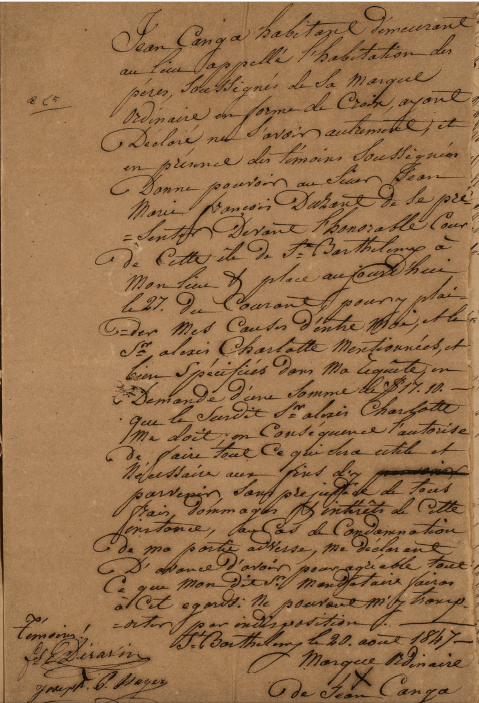 Jean Canga habitant démeurant
au lieu appellé l'habitation des
peres, Soussignés de Sa Marque
Ordinaire en forme de Croix, ayant
Déclaré ne Savoir autrement, et
en présence des témoins Soussignés
Donne pouvoir au Sieur Jean
Marie François Duzant de se pré
=senter Devant l'honorable Cour
de Cette île de St. Barthelemy à
Mon lieu & place aujourd'hui
le 27. du Courant pour y plai
=der Mes Causes d'entre Moi, et le
Sr. alexis Charlotte Mentionnées, et
bien Spécifiées dans Ma requête, en
Demande d'une Somme de $17.10.—
que le Surdit Sr. alexis Charlotte
Me doit; en Conséquence l'autorise
de faire tout Ce qui Sera utile et
Nécessaire aux fins d'y
parvenir, Sans préjudice de tous
frais, dommages & intérêts de Cette
instance, au Cas de Condamnation
de ma partie adverse, me déclarant
D'avance d'avoir pour agréable tout
Ce que Mon dit Sr. Mandataire fairas
à Cet égard: Ne pouvant m'y transp-
=orter par indisposition.
St. Barthelemy le 20. aout 1847—
Marque Ordinaire
X
de Jean Canga
Témoins!
Joseph.